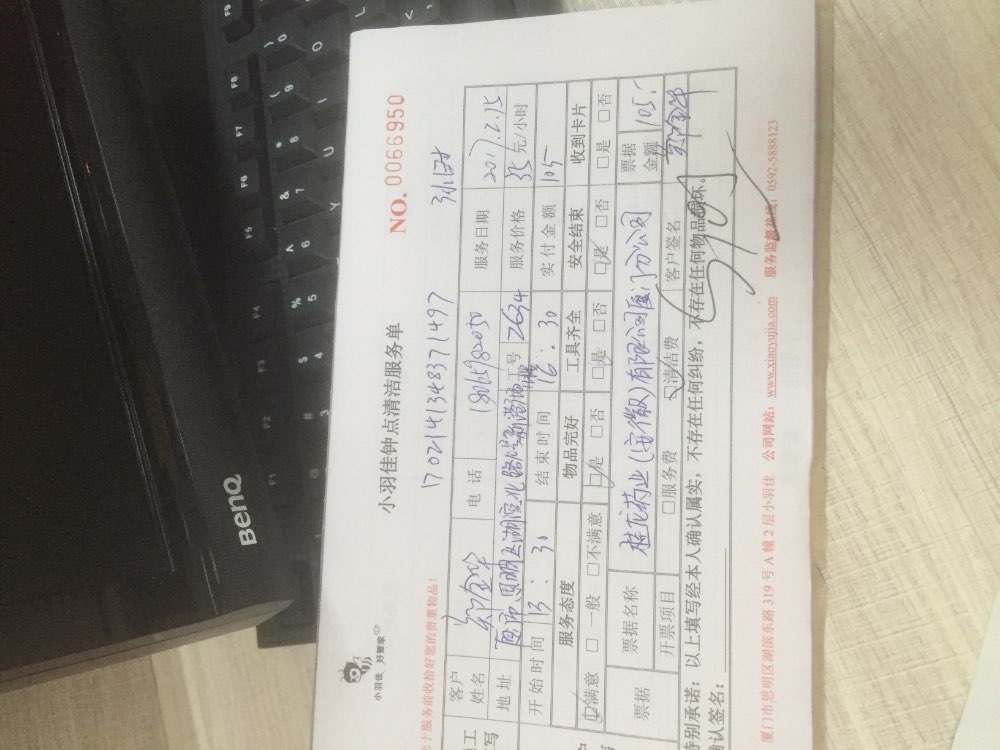 BenQ
小羽佳 好管家
小羽佳钟点清洁服务单
NO. 0066950
于服务前收拾好您的贵重物品!
1702141348371497
客户姓名 电话 18065982050 服务日期 2017.2.15
地址 工号 2634 服务价格 35 元/小时
开始时间 13:30 结束时间 16:30 实付金额 105
服务态度 物品完好 工具齐全 安全结束 收到卡片
☑满意 □一般 □不满意 ☑是 □否 ☑是 □否 ☑是 □否 □是 □否
票据 票据名称 桂龙药业(安徽)有限公司厦门分公司 票据金额 105
开票项目 □服务费 ☑清洁费 客户签名
特别承诺:以上填写经本人确认属实,不存在任何纠纷,不存在任何物品损坏。
确认签名:
厦门市思明区湖滨东路 319 号 A 幢 2 层小羽佳 公司网站:www.xiaoyujia.com 服务监督热线:0592-5888123